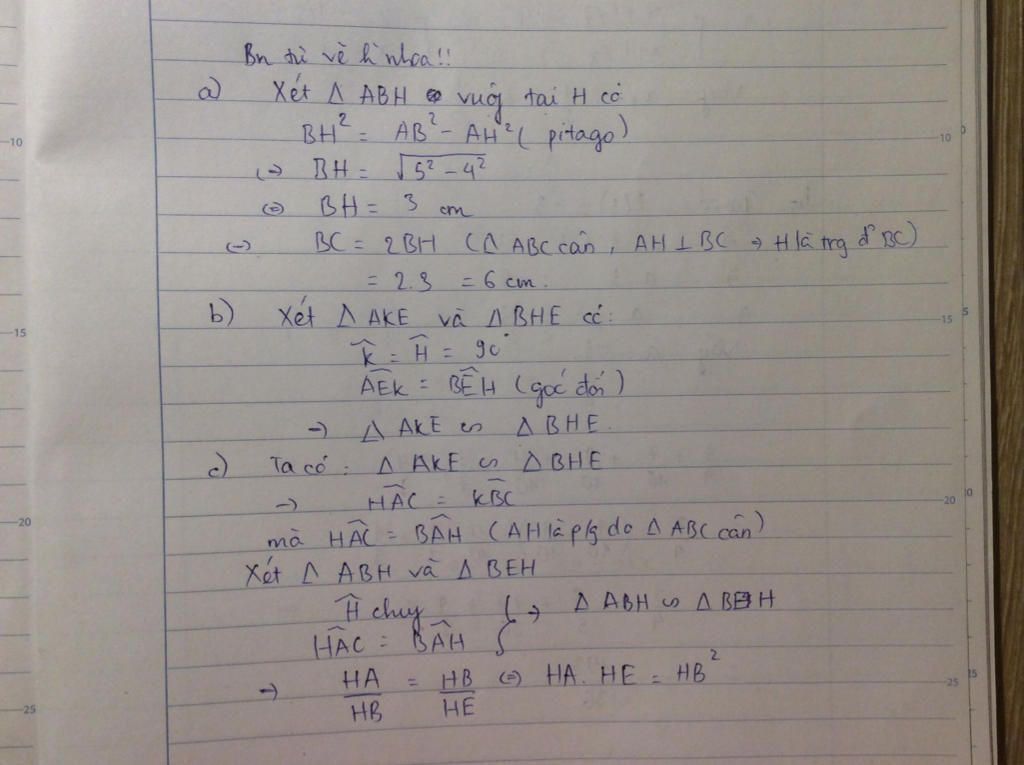 Bn tự vẽ hình nhoa!!
a) Xét Δ ABH vuôg tại H có
BH² = AB² - AH² ( pitago)
(=) BH = √5² - 4²
(=) BH = 3 cm
(=) BC = 2BH (Δ ABC cân, AH ⊥ BC → H là trg đ' BC)
= 2.3 = 6 cm.
b) Xét Δ AKE và Δ BHE có:
K̂ = Ĥ = 90°
AÊK = BÊH (góc đối)
→ Δ AKE ∽ Δ BHE.
c) Ta có: Δ AKE ∽ Δ BHE
→ HÂC = KB̂C
mà HÂC = BÂH (AH là p/g do Δ ABC cân)
Xét Δ ABH và Δ BEH
Ĥ chug } → Δ ABH ∽ Δ BEH
HÂC = BÂH
→ HA/HB = HB/HE (=) HA. HE = HB²
10
15
20
25
10
15
20
25
5
0